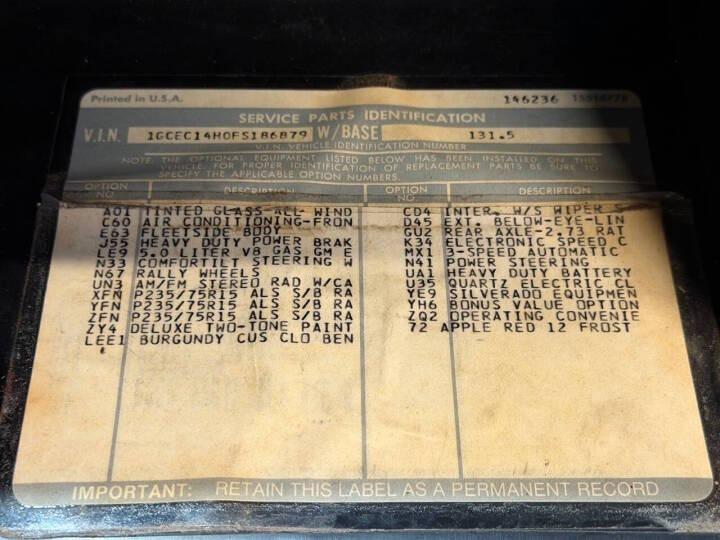 Printed in U.S.A. 146236
SERVICE PARTS IDENTIFICATION
V.I.N. 1GCEC14H0FS186879 W/BASE 131.5
V.I.N. VEHICLE IDENTIFICATION NUMBER
NOTE: THE OPTIONAL EQUIPMENT LISTED BELOW HAS BEEN INSTALLED ON THIS
VEHICLE. FOR PROPER IDENTIFICATION OF REPLACEMENT PARTS BE SURE TO
SPECIFY THE APPLICABLE OPTION NUMBERS.
OPTION NO. DESCRIPTION OPTION NO. DESCRIPTION
A01 TINTED GLASS-ALL WIND CD4 INTER. W/S WIPER S
C60 AIR CONDITIONING-FRON D45 EXT. BELOW-EYE-LIN
E63 FLEETSIDE BODY GU2 REAR AXLE-2.73 RAT
J55 HEAVY DUTY POWER BRAK K34 ELECTRONIC SPEED C
LE9 5.0 LITER V8 GAS GM E MX1 3-SPEED AUTOMATIC
N33 COMFORTILT STEERING W N41 POWER STEERING
N67 RALLY WHEELS UA1 HEAVY DUTY BATTERY
UN3 AM/FM STEREO RAD W/CA U35 QUARTZ ELECTRIC CL
XFN P235/75R15 ALS S/B RA YE9 SILVERADO EQUIPMEN
YFN P235/75R15 ALS S/B RA YH6 BONUS VALUE OPTION
ZFN P235/75R15 ALS S/B RA ZQ2 OPERATING CONVENIE
ZY4 DELUXE TWO-TONE PAINT 72 APPLE RED 12 FROST
LEE1 BURGUNDY CUS CLO BEN
IMPORTANT: RETAIN THIS LABEL AS A PERMANENT RECORD